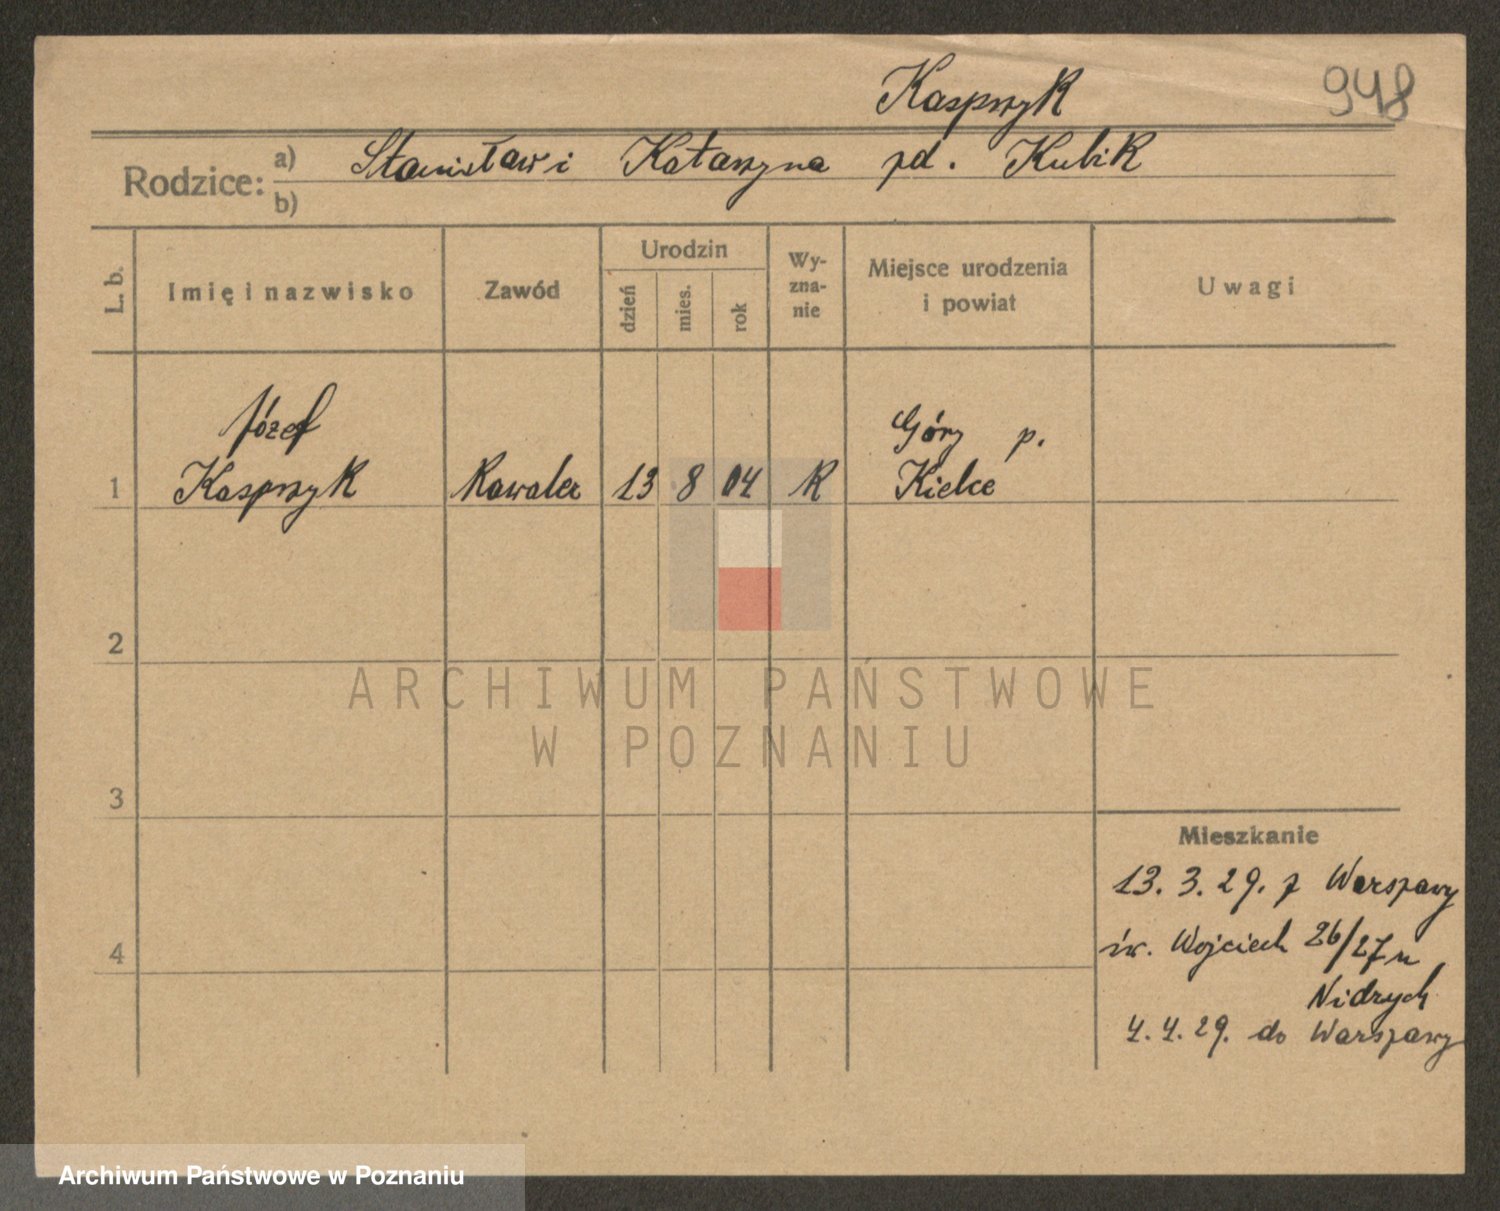 Kasprzyk 948
Rodzice: a) Stanisław i Katarzyna zd. Kubik
b)
L. b. Imię i nazwisko Zawód Urodzin dzień mies. rok Wy-zna-nie Miejsce urodzenia i powiat Uwagi
Józef Góry p.
1 Kasprzyk Kawaler 13 8 04 R Kielce
2
ARCHIWUM PAŃSTWOWE
W POZNANIU
3
Mieszkanie
13. 3. 29. z Warszawy
4 św. Wojciech 26/27 u
Nidrych
4. 4. 29. do Warszawy
Archiwum Państwowe w Poznaniu